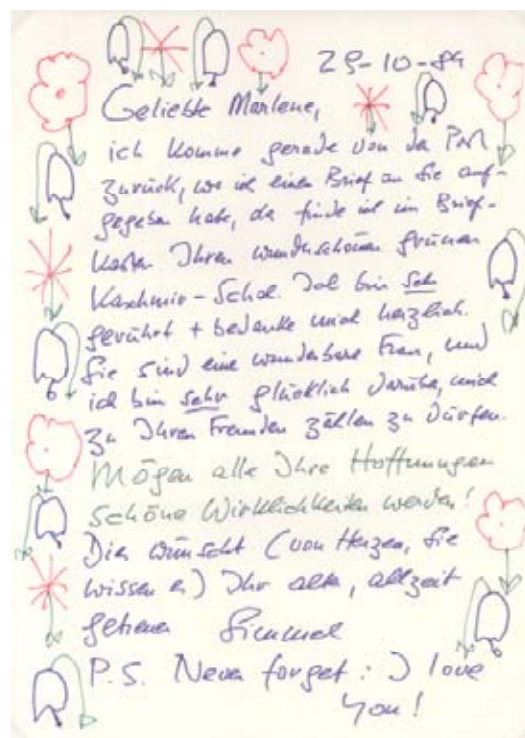 29-10-89
Geliebte Marlene,
ich komme gerade von der Post
zurück, wo ich einen Brief an Sie auf-
gegeben habe, da finde ich im Brief-
kasten Ihren wunderschönen grünen
Kaschmir-Schal. Ich bin sehr
gerührt + bedanke mich herzlich.
Sie sind eine wunderbare Frau, und
ich bin sehr glücklich darüber, mich
zu Ihren Freunden zählen zu dürfen.
Mögen alle Ihre Hoffnungen
schöne Wirklichkeiten werden!
Dies wünscht (von Herzen, Sie
wissen es) Ihr alter, allzeit
getreuer Simmel
P.S. Never forget: I love
you!